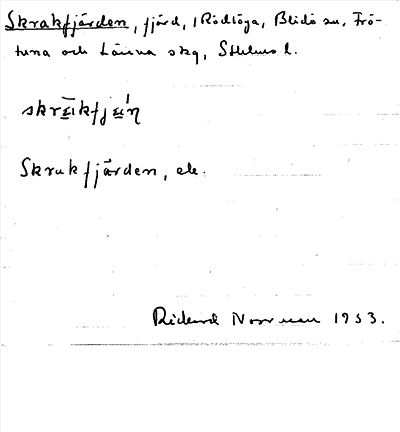 Skrakfjärden, fjärd, i Rödlöga, Blidö sn, Frö-
tuna och Länna skg, Sthlms l.
Skrakfjärden, ek.
Rickard Norrman 1953.